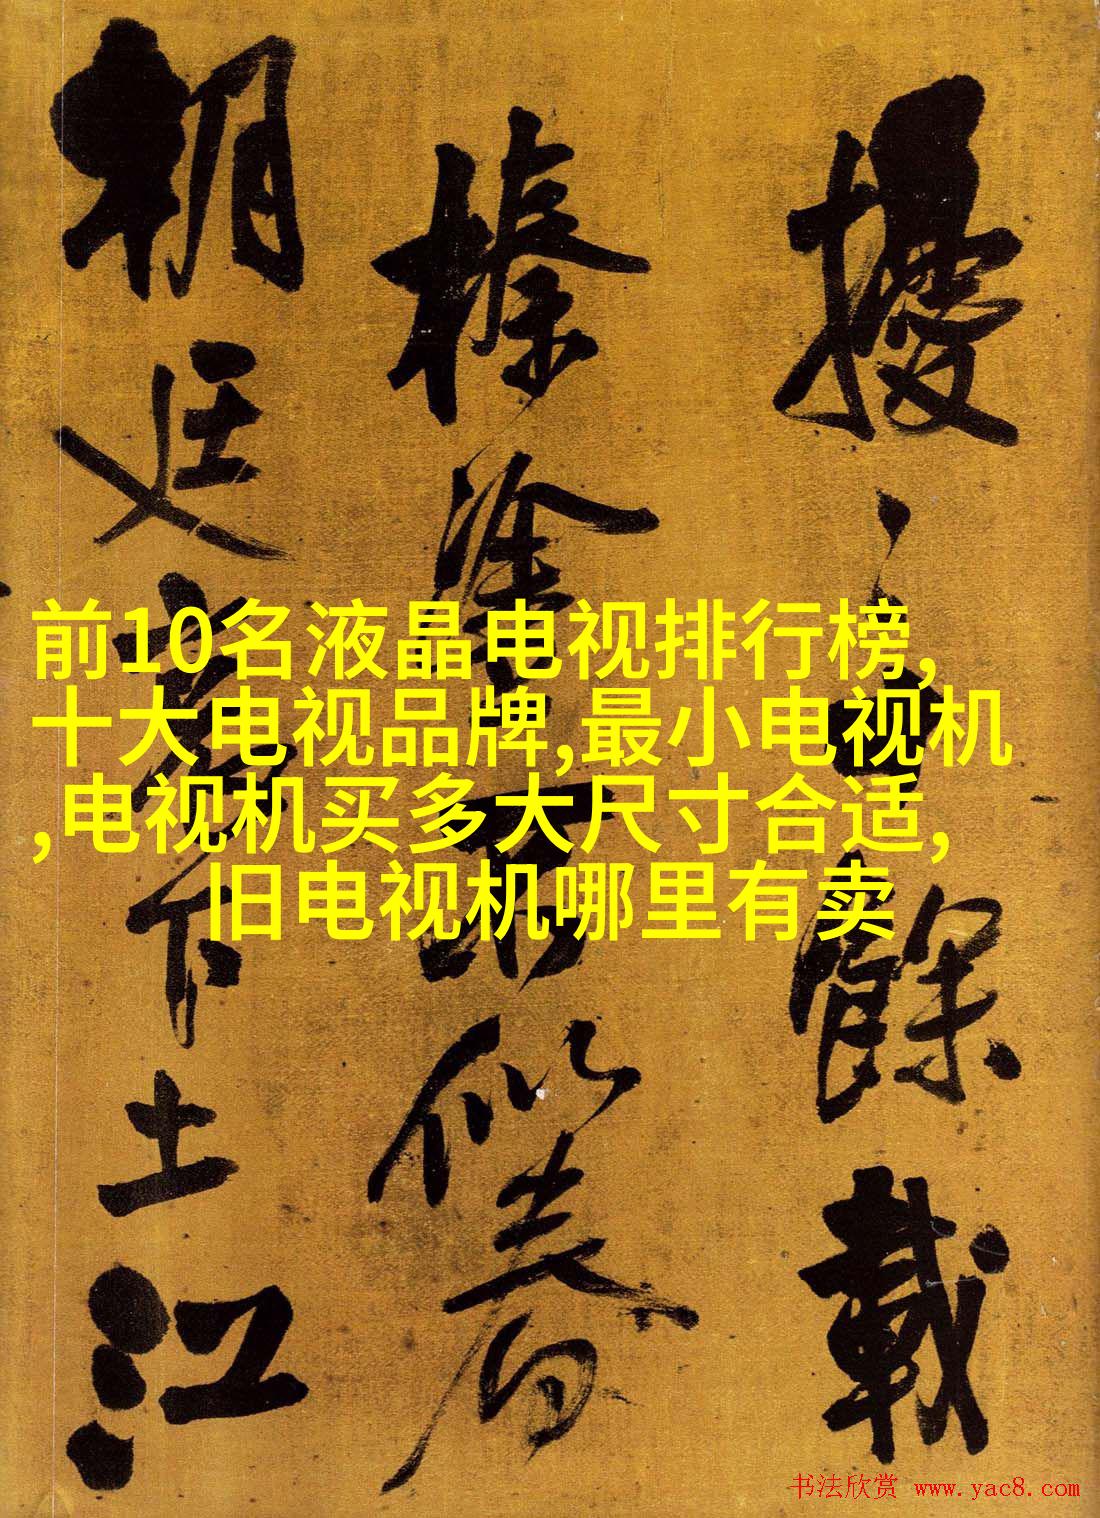 前10名液晶电视排行榜,
十大电视品牌,最小电视机
,电视机买多大尺寸合适,
旧电视机哪里有卖
擾之餘載
榛塗而似
朝廷下土江
书法欣赏 www.yac8.com